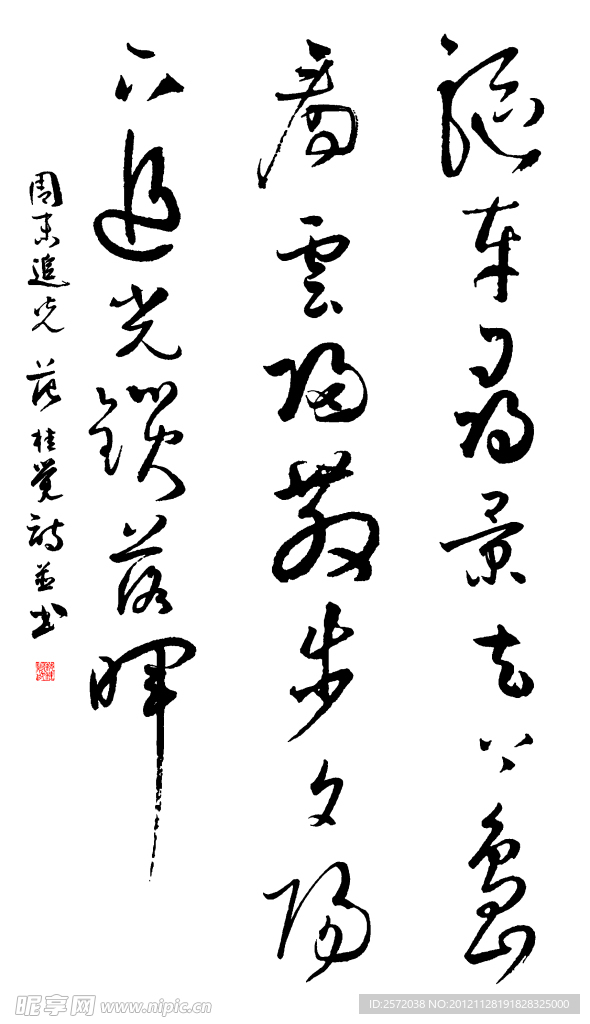 驅車尋景去小島
看雲歸散步夕陽
下追光鎖落暉
周末追光 范桂覺詩並书
昵享网 www.nipic.cn
ID:2572038 NO:20121128191828325000